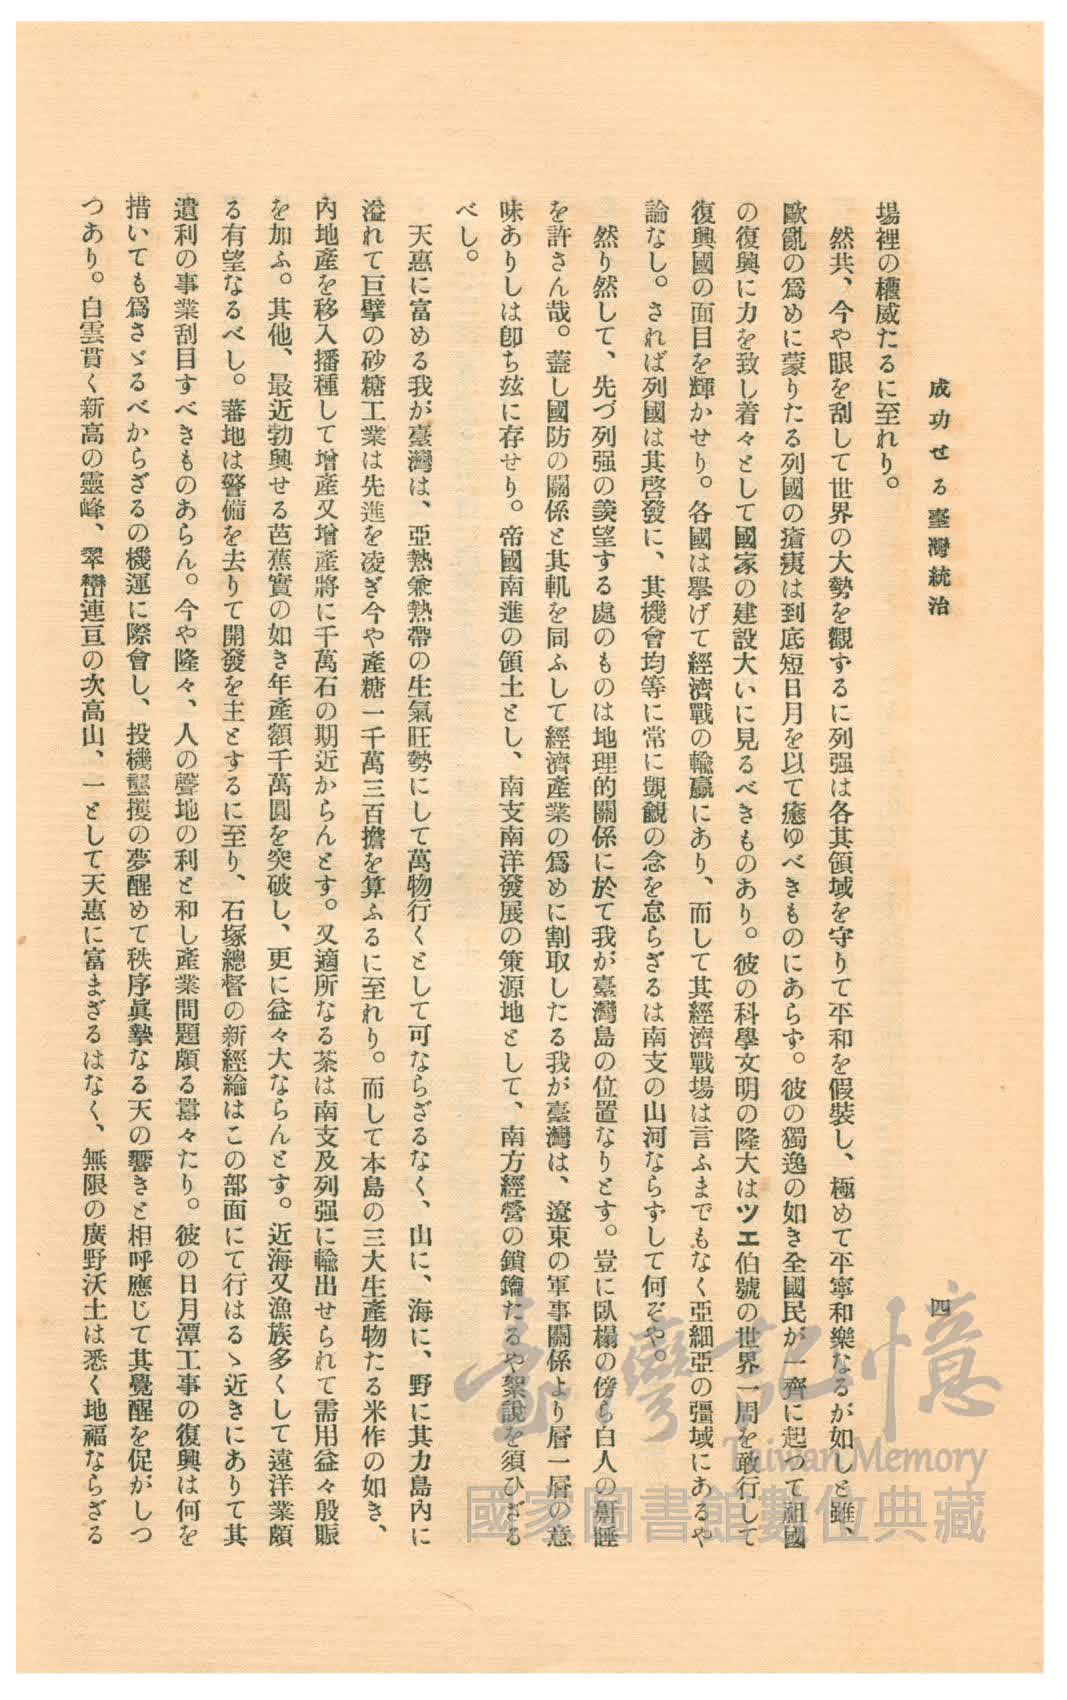 成功せる臺灣統治
四
場裡の權威たるに至れり。
然共、今や眼を刮して世界の大勢を觀ずるに列强は各其領域を守りて平和を假裝し、極めて平寧和樂なるが如しと雖、
歐亂の爲めに蒙りたる列國の瘡痍は到底短日月を以て癒ゆべきものにあらず。彼の獨逸の如き全國民が一齊に起つて祖國
の復興に力を致し着々として國家の建設大いに見るべきものあり。彼の科學文明の隆大はツエ伯號の世界一周を敢行して
復興國の面目を輝かせり。各國は擧げて經濟戰の輸贏にあり、而して其經濟戰場は言ふまでもなく亞細亞の彊域にあるや
論なし。されば列國は其啓發に、其機會均等に常に覬覦の念を怠らざるは南支の山河ならずして何ぞや。
然り然して、先づ列强の羨望する處のものは地理的關係に於て我が臺灣島の位置なりとす。豈に臥榻の傍ら白人の鼾睡
を許さん哉。蓋し國防の關係と其軌を同ふして經濟產業の爲めに割取したる我が臺灣は、遼東の軍事關係より層一層の意
味ありしは卽ち玆に存せり。帝國南進の領土とし、南支南洋發展の策源地として、南方經營の鎖鑰たるや絮說を須ひざる
べし。
天惠に富める我が臺灣は、亞熱兼熱帶の生氣旺勢にして萬物行くとして可ならざるなく、山に、海に、野に其力島內に
溢れて巨擘の砂糖工業は先進を凌ぎ今や產糖一千萬三百擔を算ふるに至れり。而して本島の三大生產物たる米作の如き、
內地產を移入播種して增產又增產將に千萬石の期近からんとす。又適所なる茶は南支及列强に輸出せられて需用益々殷賑
を加ふ。其他、最近勃興せる芭蕉實の如き年產額千萬圓を突破し、更に益々大ならんとす。近海又漁族多くして遠洋業頗
る有望なるべし。蕃地は警備を去りて開發を主とするに至り、石塚總督の新經綸はこの部面にて行はるゝ近きにありて其
遺利の事業刮目すべきものあらん。今や隆々、人の聲地の利と和し產業問題頗る囂々たり。彼の日月潭工事の復興は何を
措いても爲さゞるべからざるの機運に際會し、投機壟攫の夢醒めて秩序眞摯なる天の響きと相呼應じて其覺醒を促がしつ
つあり。白雲貫く新高の靈峰、翠巒連亘の次高山、一として天惠に富まざるはなく、無限の廣野沃土は悉く地福ならざる
臺灣記憶
Taiwan Memory
國家圖書館數位典藏